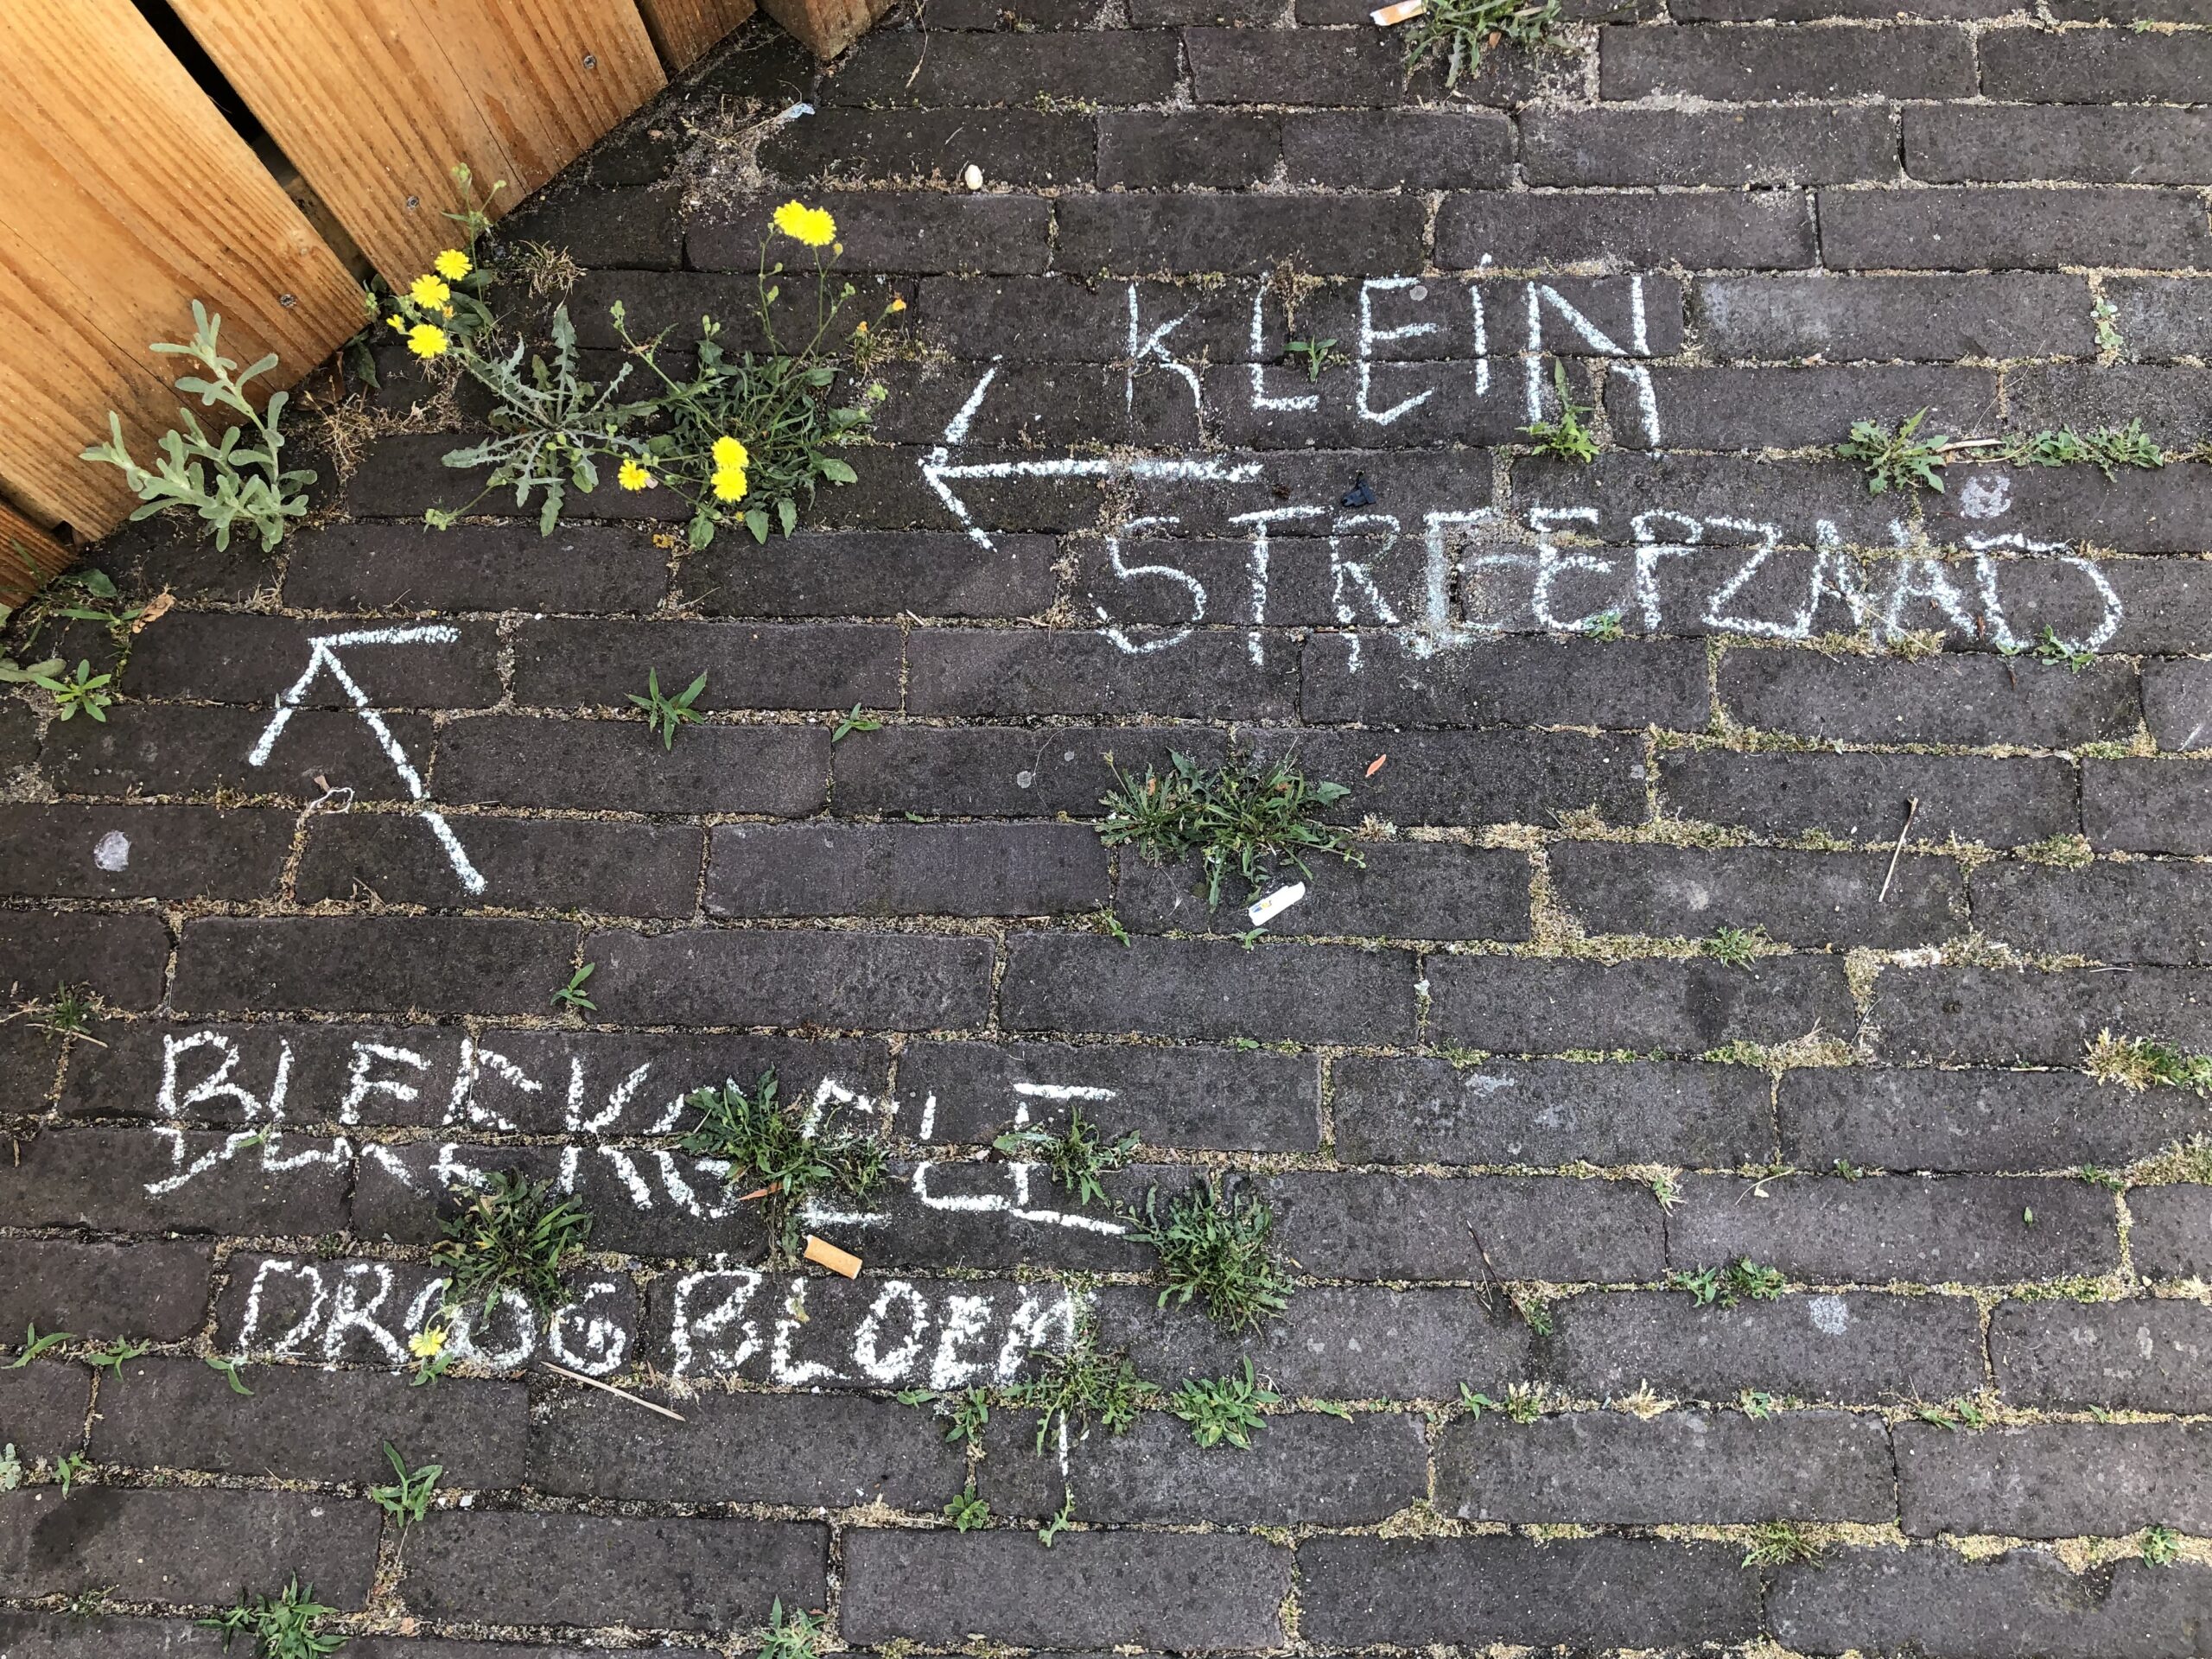 KLEIN
STREEPZAAD
BLEEKGELE
DROOGBLOEM